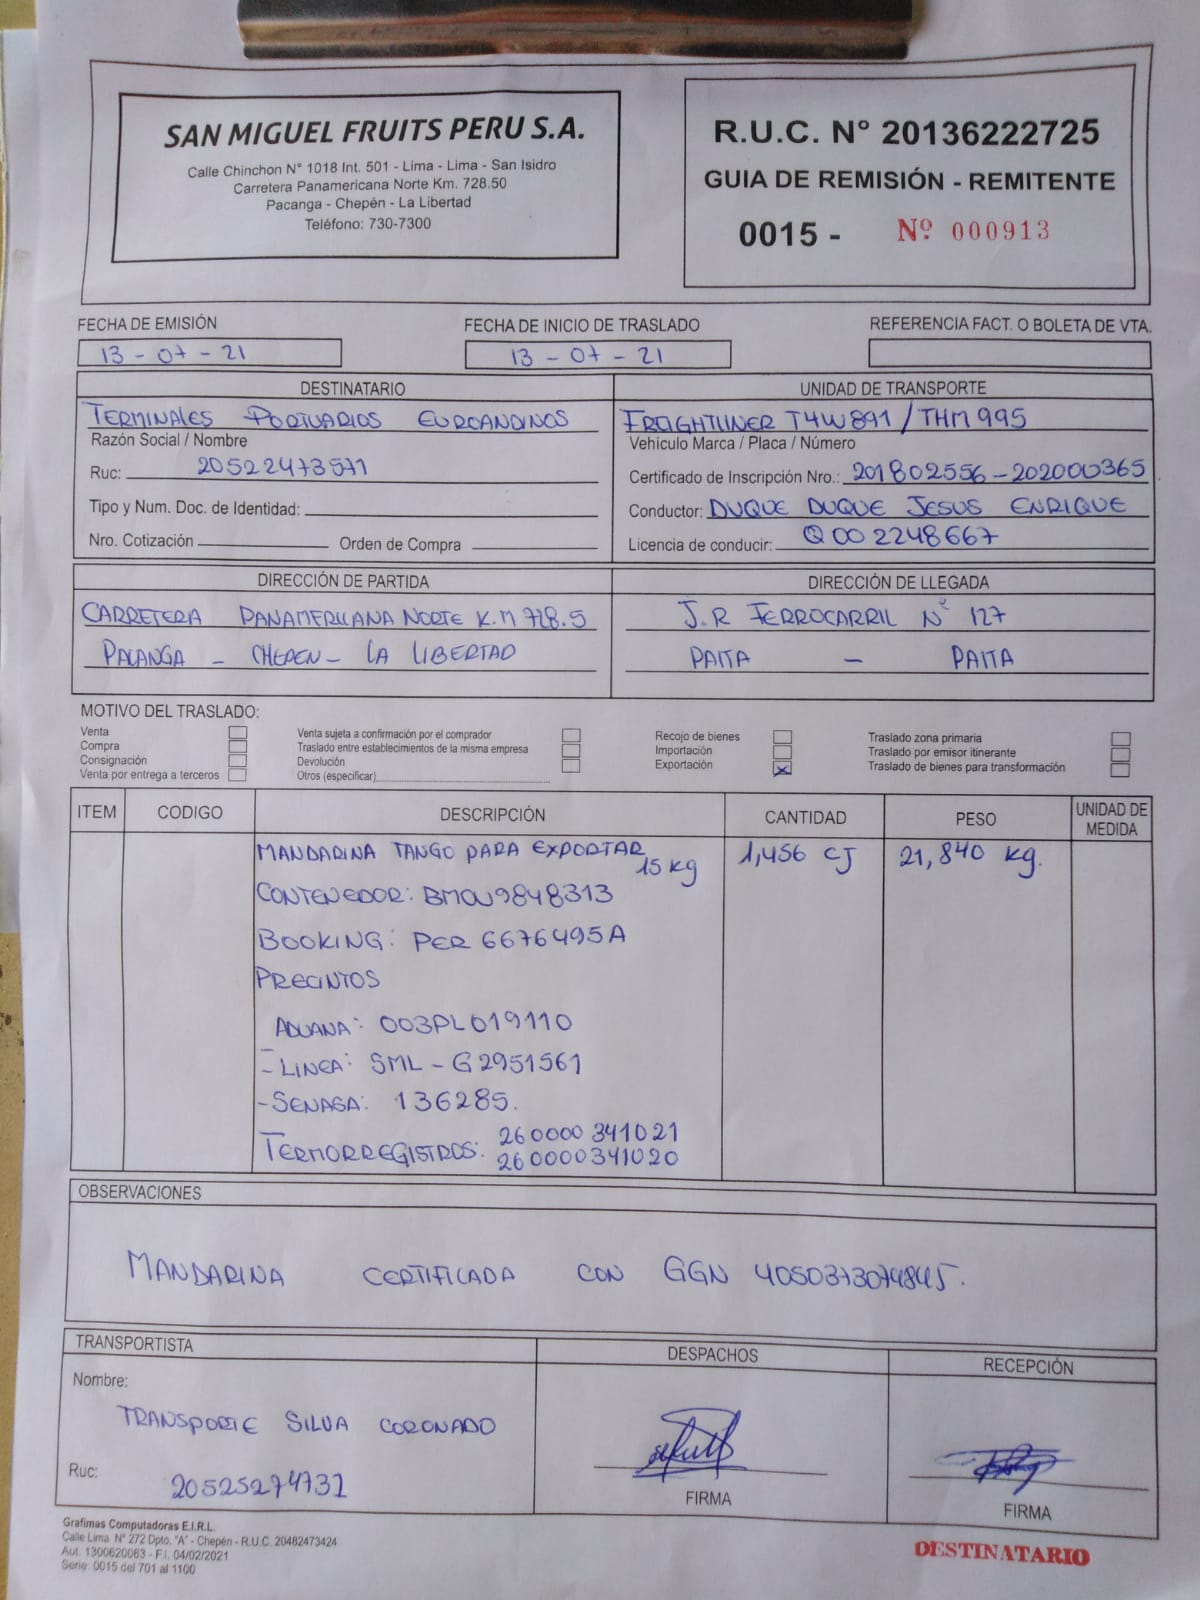 SAN MIGUEL FRUITS PERU S.A.
Calle Chinchon N° 1018 Int. 501 - Lima - Lima - San Isidro
Carretera Panamericana Norte Km. 728.50
Pacanga - Chepén - La Libertad
Teléfono: 730-7300
R.U.C. N° 20136222725
GUIA DE REMISIÓN - REMITENTE
0015 - Nº 000913
FECHA DE EMISIÓN
13 - 07 - 21
FECHA DE INICIO DE TRASLADO
13 - 07 - 21
REFERENCIA FACT. O BOLETA DE VTA.
DESTINATARIO
TERMINALES PORTUARIOS EUROANDINOS
Razón Social / Nombre
Ruc: 20522473571
Tipo y Num. Doc. de Identidad:
Nro. Cotización Orden de Compra
UNIDAD DE TRANSPORTE
FREIGHTLINER T4W891 / THM995
Vehículo Marca / Placa / Número
Certificado de Inscripción Nro.: 201802556 - 202000365
Conductor: DUQUE DUQUE JESUS ENRIQUE
Licencia de conducir: Q002248667
DIRECCIÓN DE PARTIDA
CARRETERA PANAMERICANA NORTE K.M 728.5
PACANGA - CHEPEN - LA LIBERTAD
DIRECCIÓN DE LLEGADA
J.R FERROCARRIL Nº 127
PAITA - PAITA
MOTIVO DEL TRASLADO:
Venta
Compra
Consignación
Venta por entrega a terceros
Venta sujeta a confirmación por el comprador
Traslado entre establecimientos de la misma empresa
Devolución
Otros (especificar)
Recojo de bienes
Importación
Exportación X
Traslado zona primaria
Traslado por emisor itinerante
Traslado de bienes para transformación
ITEM CODIGO DESCRIPCIÓN CANTIDAD PESO UNIDAD DE MEDIDA
MANDARINA TANGO PARA EXPORTAR 15 kg 1,456 CJ 21,840 kg.
CONTENEDOR: BMOU9848313
BOOKING: PER 6676495A
PRECINTOS
ADUANA: 003PL019110
- LINEA: SML - G2951561
- SENASA: 136285.
TERMORREGISTROS: 260000341021
260000341020
OBSERVACIONES
MANDARINA CERTIFICADA CON GGN 4050373074845.
TRANSPORTISTA
Nombre:
TRANSPORTE SILVA CORONADO
Ruc: 20525274732
DESPACHOS
FIRMA
RECEPCIÓN
FIRMA
Grafimas Computadoras E.I.R.L.
Calle Lima N° 272 Dpto. "A" - Chepén - R.U.C. 20482473424
Aut. 1300620063 - F.I. 04/02/2021
Serie: 0015 del 701 al 1100
DESTINATARIO